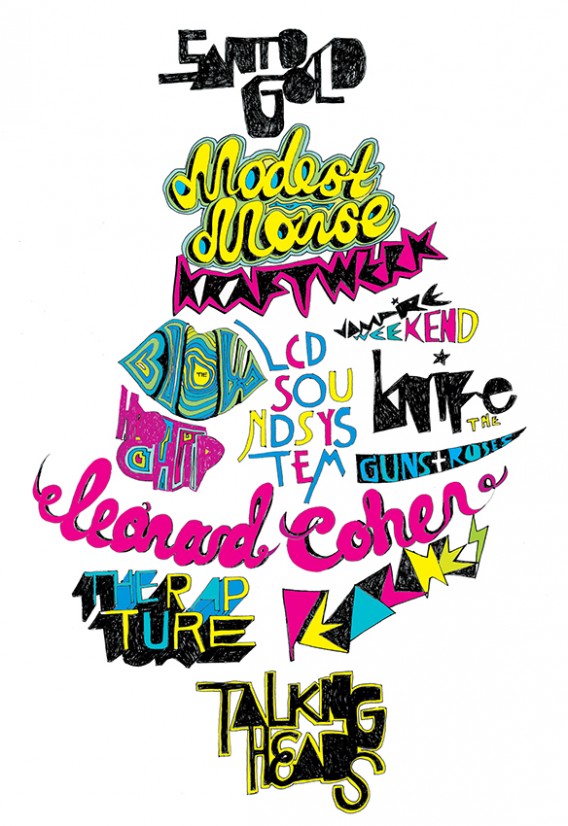 SANTO
GOLD
Modest
Mouse
KRAFTWERK
VAMPiRE
WEEKEND
BLOW
THE
LCD
SOU
NDSYS
TEM
knife
THE
HOT
CHiP
GUNS+ROSES
Leonard Cohen
THE RAP
TURE
PEACHES
TALKING
HEADS